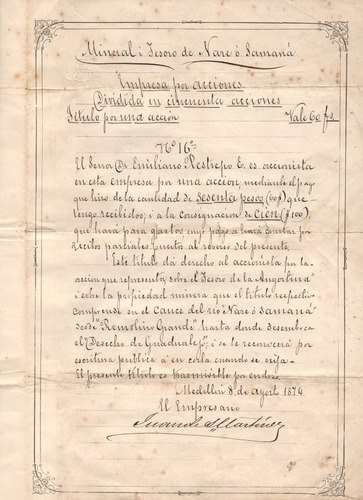 Mineral i Tesoro de Nare ó Samaná
Empresa por acciones
Dividida en cincuenta acciones
Título por una acción Vale 60 fs
Nº 16
El Señor Dr Emiliano Restrepo E. es accionista
en esta empresa por una accion, mediante el pago
que hizo de la cantidad de sesenta pesos (60$) que
tengo recibidos; i a la consignacion de cien ($100),
que hará para gastos cuyo pago se hará constar por
recibos parciales puestos al reverso del presente.
Este título da derecho al accionista pr la
acción que representa, sobre el Tesoro de la Angostura
i sobre la propiedad minera que el título respectivo
comprende en el cauce del rio Nare ó Samaná
desde "Remolino Grande" hasta donde desemboca
el "Desecho de Guadualejo"; i se le reconocerá por
escritura publica ó en cuando se exija.
El presente título es trasmisible por endoso.
Medellin 8 de Agost 1874
El Empresario
Juan de S. Martínez